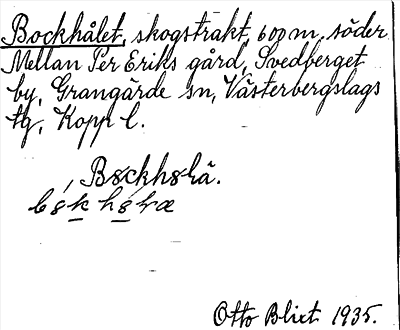 Bockhålet, skogstrakt, 600 m, söder
Mellan Per Eriks gård, Svedberget
by, Grangärde sn, Västerbergslags
tg, Kopp l.
Otto Blixt 1935.